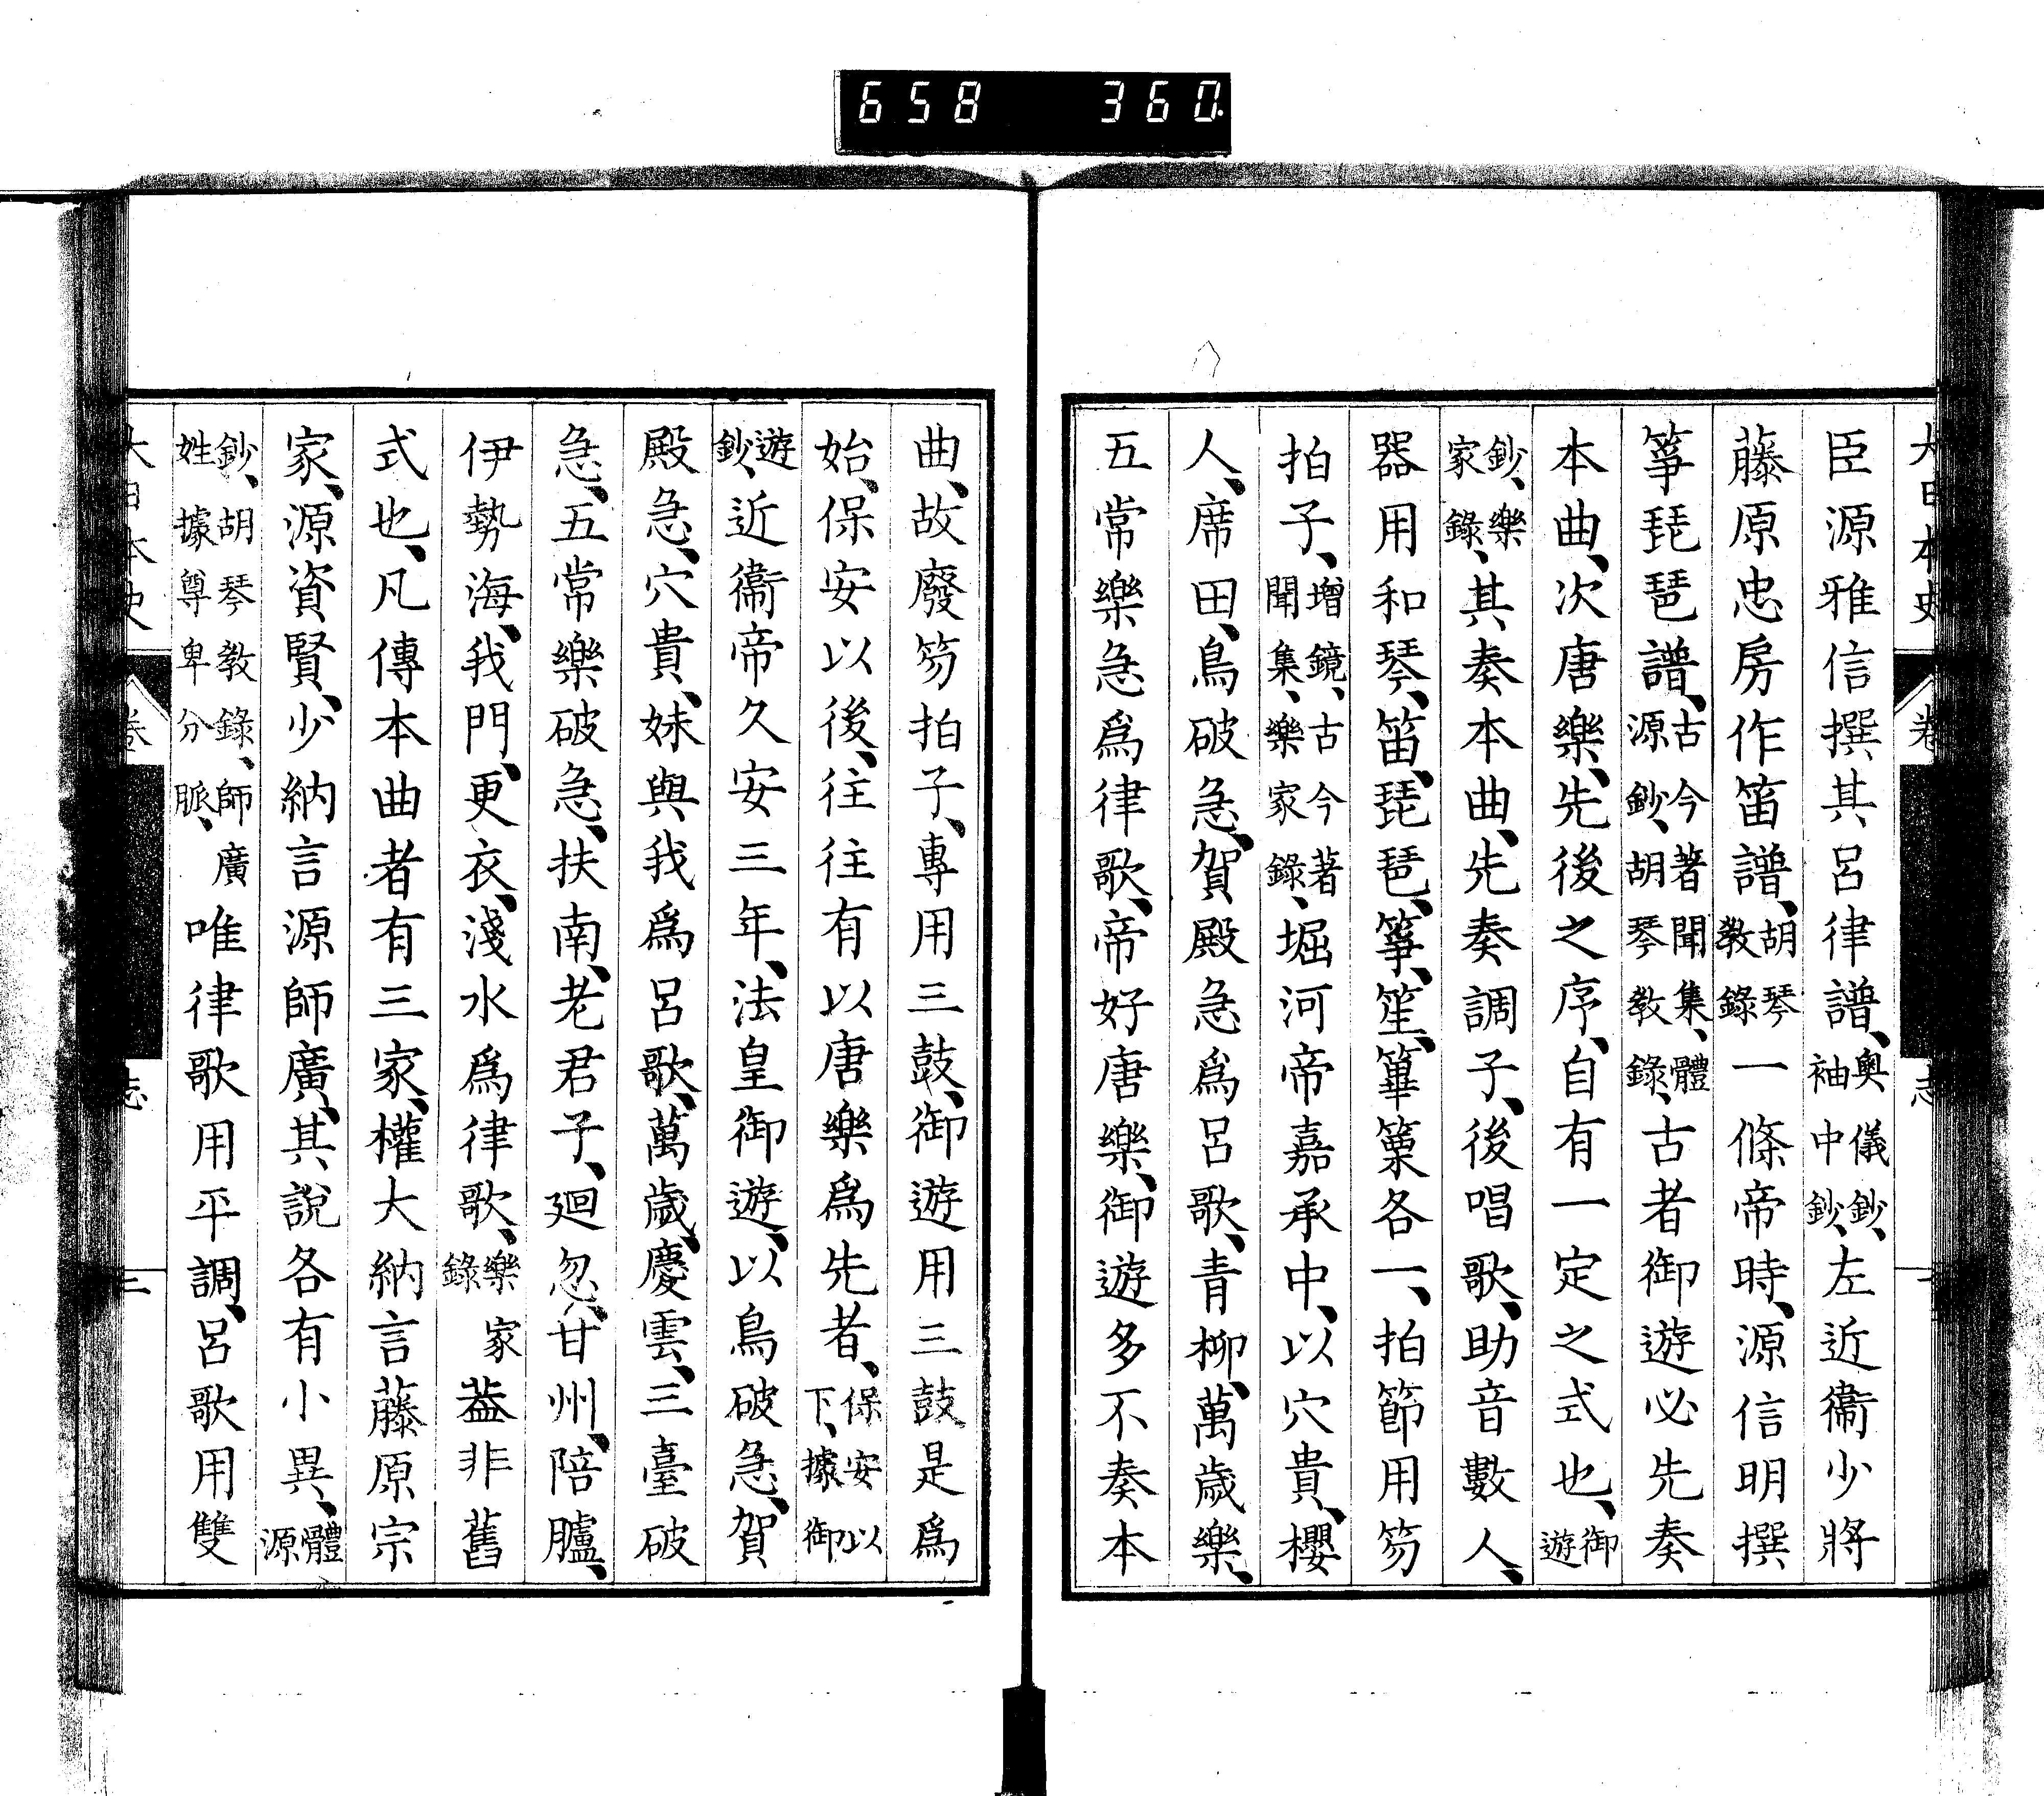 658 360
大日本史 卷 志
臣源雅信撰其呂律譜、奧儀鈔、袖中鈔、左近衞少將
藤原忠房作笛譜、胡琴教錄一條帝時、源信明撰
箏琵琶譜、古今著聞集、體源鈔、胡琴教錄、古者御遊必先奏
本曲、次唐樂、先後之序、自有一定之式也、御遊
鈔、樂家錄、其奏本曲、先奏調子、後唱歌、助音數人、
器用和琴、笛、琵琶、箏、笙、篳篥各一、拍節用笏
拍子、增鏡、古今著聞集、樂家錄、堀河帝嘉承中、以穴貴、櫻
人、席田、鳥破急、賀殿急爲呂歌、青柳、萬歲樂、
五常樂急爲律歌、帝好唐樂、御遊多不奏本
曲、故廢笏拍子、專用三鼓、御遊用三鼓是爲
始、保安以後、往往有以唐樂爲先者、保安以下、據御
遊鈔、近衞帝久安三年、法皇御遊、以鳥破急、賀
殿急、穴貴、妹與我爲呂歌、萬歲、慶雲、三臺破
急、五常樂破急、扶南、老君子、廻忽、甘州、陪臚、
伊勢海、我門、更衣、淺水爲律歌、樂家錄葢非舊
式也、凡傳本曲者有三家、權大納言藤原宗
家、源資賢、少納言源師廣、其說各有小異、體源
鈔、胡琴教錄、師廣姓據尊卑分脈、唯律歌用平調、呂歌用雙
大日本史 卷 志